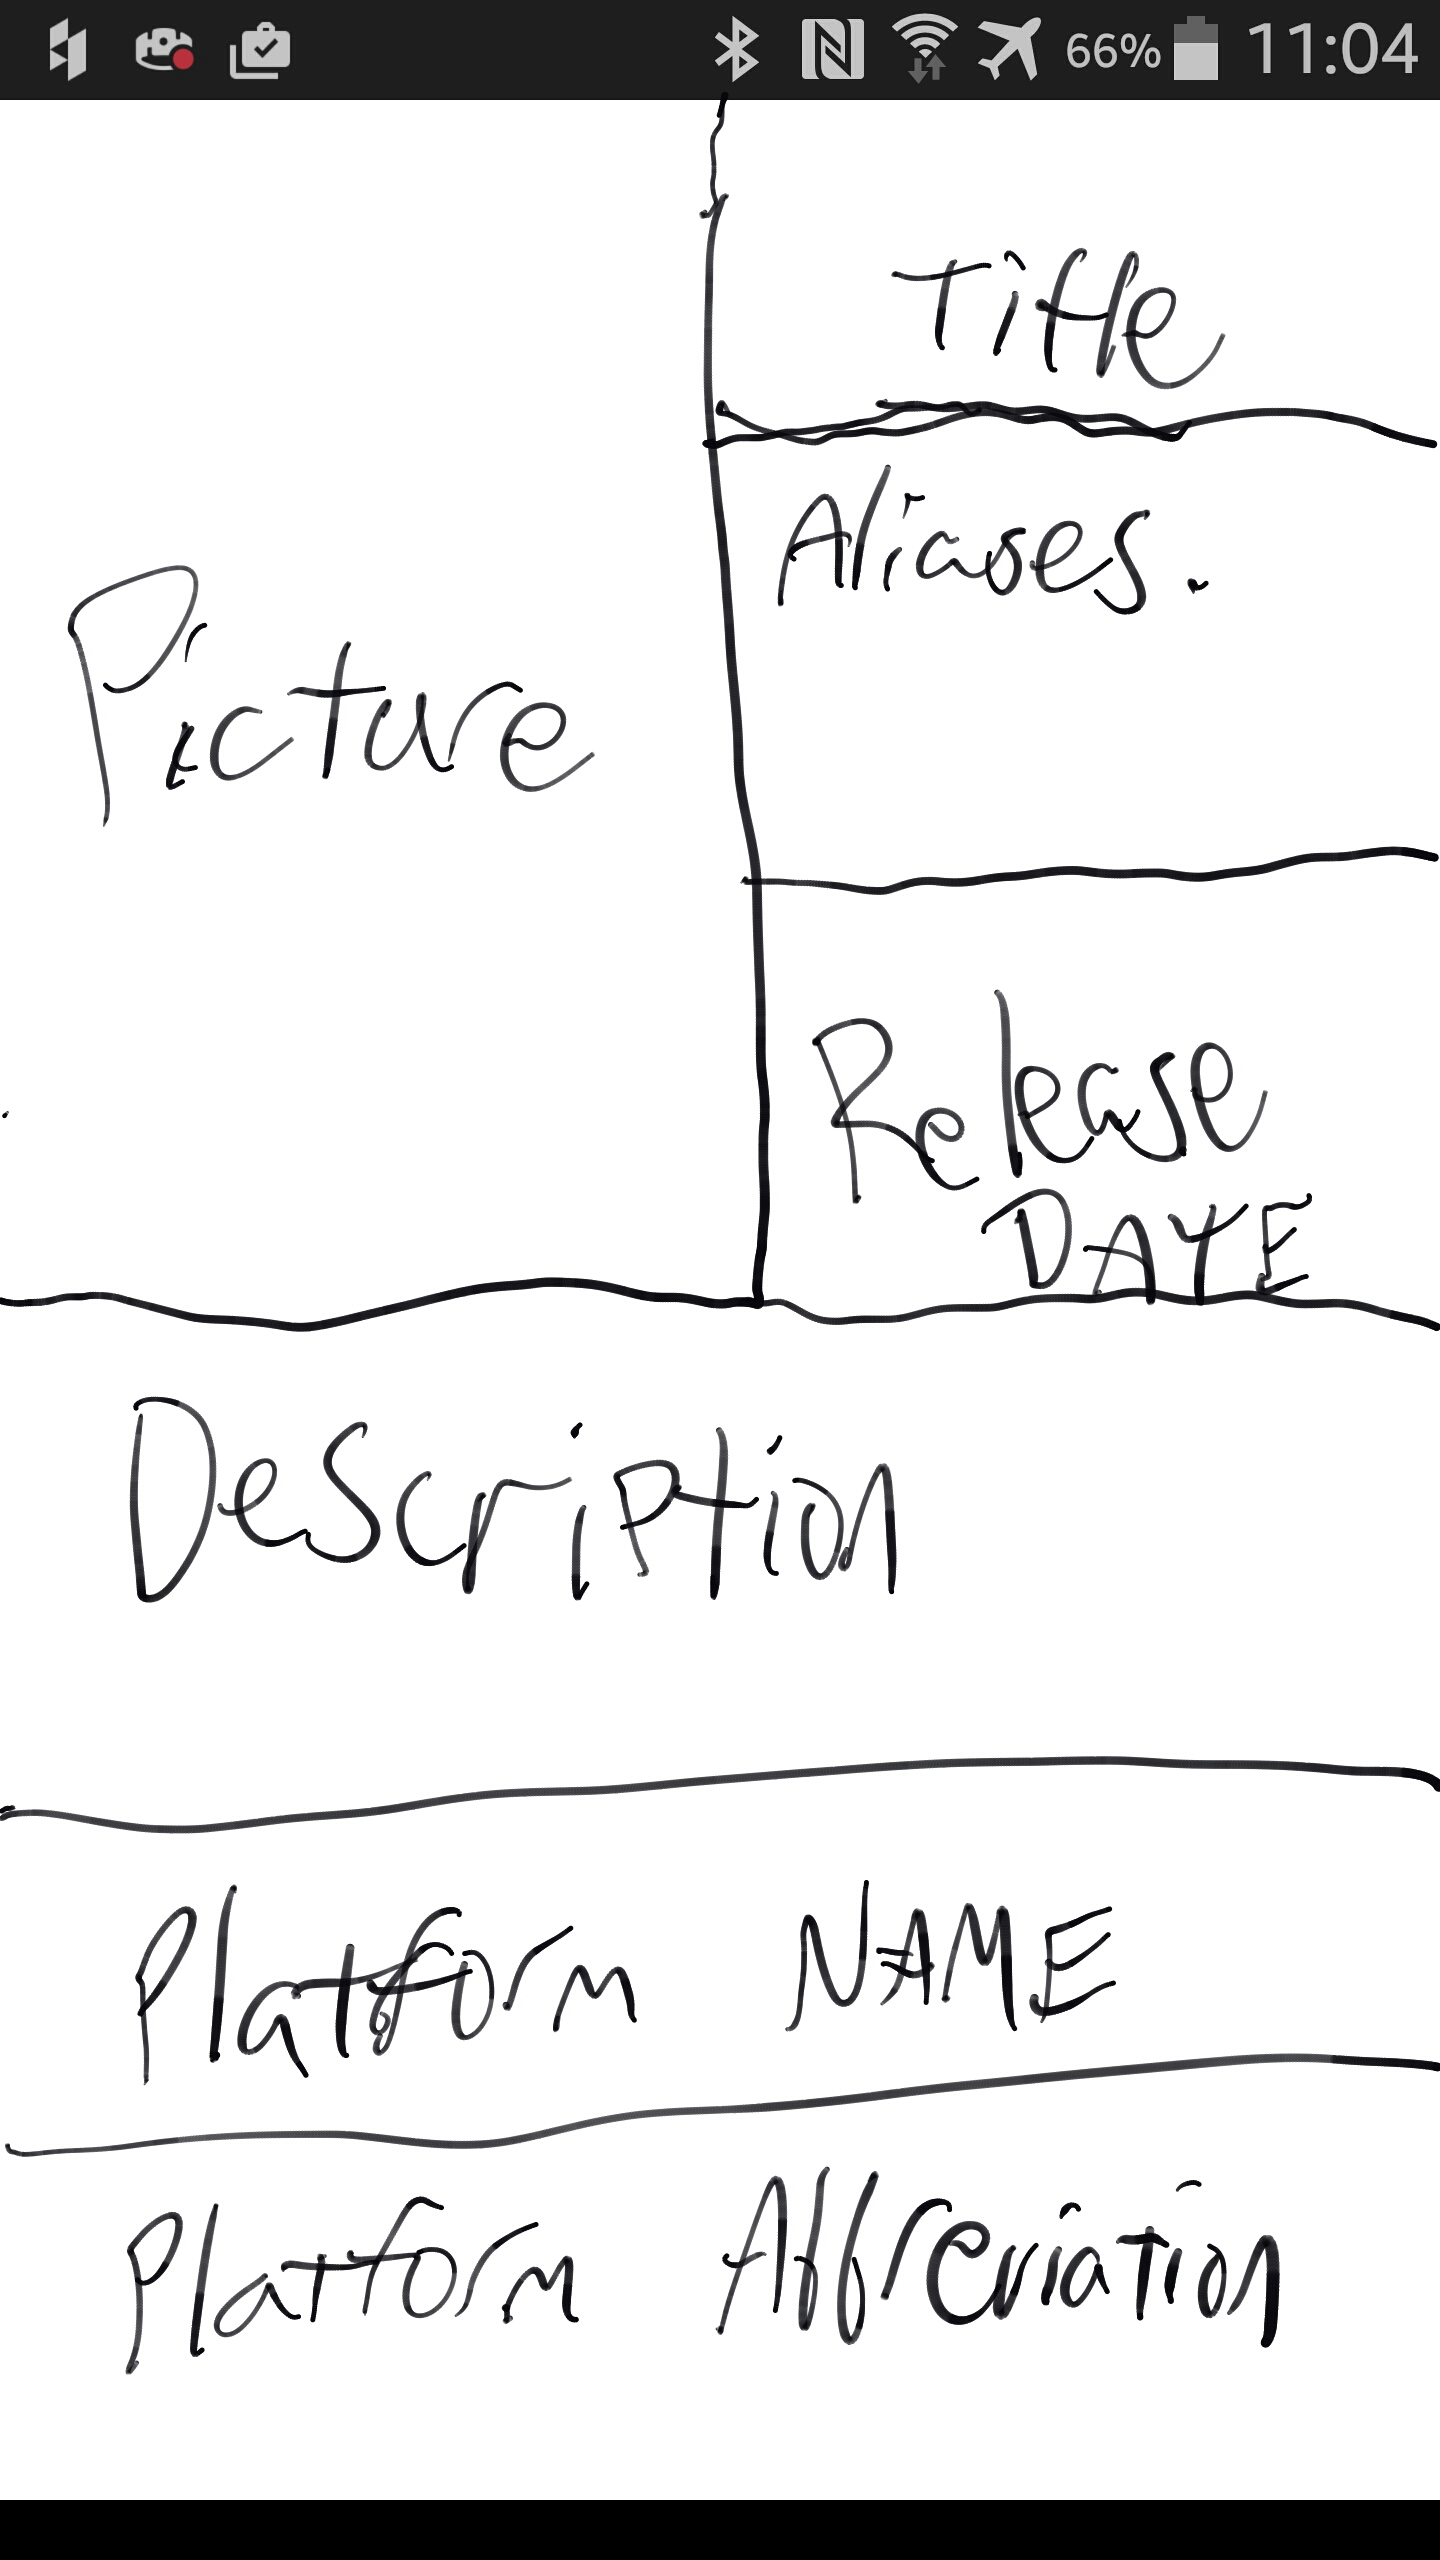 66% 11:04
Title
Aliases.
Picture
Release
DATE
Description
Platform NAME
Platform Affreviation